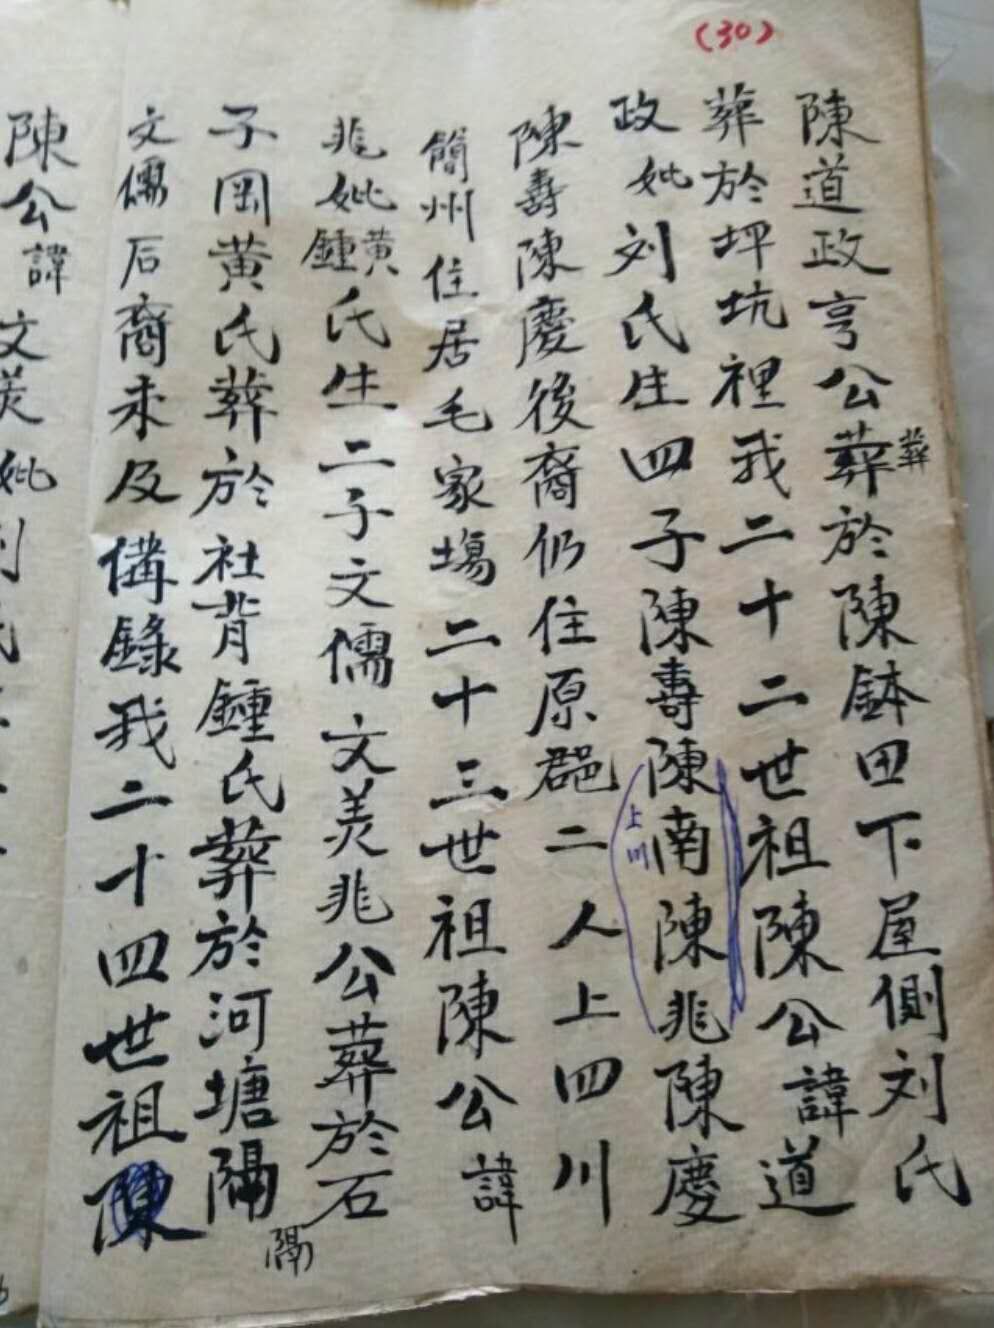 (30)
陳道政亨公葬於陳鉢田下屋側刘氏
葬
葬於坪坑裡我二十二世祖陳公諱道
政妣刘氏生四子陳壽陳南陳兆陳慶
上川
陳壽陳慶後裔仍住原郡二人上四川
簡州住居毛家塲二十三世祖陳公諱
兆妣黃鍾氏生二子文儒文美兆公葬於石
子岡黃氏葬於社背鍾氏葬於河塘隔
隔
文儒后裔未及備錄我二十四世祖陳
陳公諱文美妣刘氏